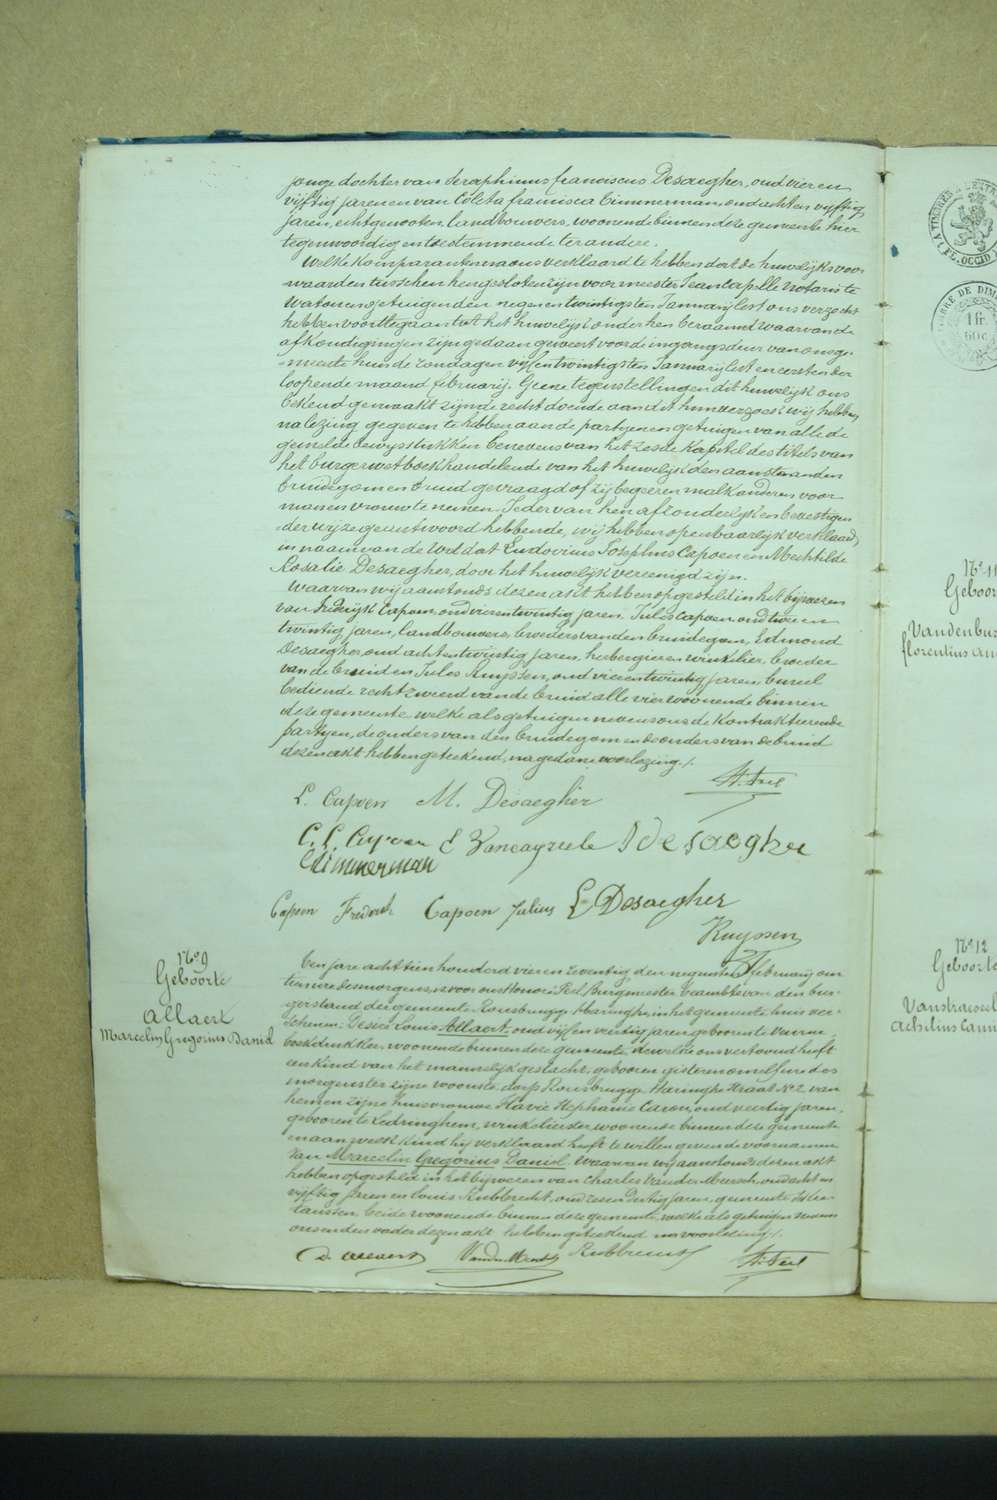 jonge dochter van Seraphinus franciscus Desaegher, oud vier en
vijftig jaren en van Coleta francisca Cimmerman, oud acht en vijftig
jaren, echtgenooten, landbouwers, woonende binnen deze gemeente hier
tegenwoordig en toestemmende ter andere.
Welke komparanten na ons verklaard te hebben dat de huwelijks voor
waarden tusschen hen gesloten zijn voor meester Jean Capelle Notaris te
Watou en getuigen den negen en twintigsten Januarij lest ons verzocht
hebben voorttegaan tot het huwelijk onder hen beraamd waarvan de
afkondigingen zijn gedaan geweest voor de ingangsdeur van ons ge-
meente huis de zondagen vijf en twintigsten Januarij lest en eersten der
loopende maand februarij. Geene tegenstellingen dit huwelijk ons
bekend gemaakt zijnde recht doende aan dit hun verzoek wij hebben
na lezing gegeven te hebben aan de partijen en getuigen van alle de
gemelde bewijsstukken benevens van het zesde kapitel des titels van
het burger wetboek handelende van het huwelijk den aanstaanden
bruidegom en bruid gevraagd of zij begeeren malkanderen voor
man en vrouw te nemen. Ieder van hen afzonderlijk en bevestigen
der wyze geantwoord hebbende, wij hebben openbaarlijk verklaard,
in naam van de Wet dat Ludovicus Josephus Capoen en Mechtilde
Rosalie Desaegher, door het huwelijk vereenigd zijn.
Waarvan wij aanstonds dezen akt hebben opgesteld in het bijwezen
van Frederijk Capoen, oud vier en twintig jaren, Jules Capoen oud twee en
twintig jaren, landbouwers, broeders van den bruidegom, Edmond
Desaegher, oud acht en twintig jaren, herbergier en winkelier, broeder
van de bruid en Jules Ruyssen, oud vier en twintig jaren, bureel
bediende recht zweer van de bruid alle vier woonende binnen
deze gemeente welke als getuigen nevens ons de kontrakteerende
partijen, de ouders van den bruidegom en de ouders van de bruid
dezen akt hebben geteekend, na gedane voorlezing ./.
L. Capoen M. Desaegher
C. L. Capoen E Vancayzeele S desaegher
C Cimmerman
Capoen Frederik Capoen Julius E Desaegher
Ruyssen J
No 9
Geboorte
Allaert
Marcelin Gregorius Daniel
Den jare acht tien honderd vier en zeventig den negensten februarij om
tien ure des morgens, is voor ons Honoré Burgmeester beambte van den bur-
gerstand der gemeente Rousbrugge Haringhe, in het gemeente huis ver-
schenen Desiré Louis Allaert, oud vijf en veertig jaren, geboren te Vuren
boekdrukker, woonende binnen deze gemeente, dewelke ons vertoond heeft
een kind van het mannelijk geslacht, geboren gisteren om elf ure des
morgens ter zijne woonste, dorp Rousbrugge Haringhe straat No 2 van
hem en zijne huisvrouwe Flavie Stephanie Caron, oud veertig jaren,
geboren te Ledringhem, winkelierster, woonende binnen deze gemeente
maan, welk kind hij verklaard heeft te willen geven de voornamen
van Marcelin Gregorius Daniel. Waarvan wij aanstonds dezen akt
hebben opgesteld in het bijwezen van Charles Vander Meersch, oud acht en
vijftig jaren en Louis Rubbrecht, oud zes en dertig jaren, gemeente
beide woonende binnen deze gemeente, welke als getuigen nevens
ons en den vader dezen akt hebben geteekend na voorlezing ./.
D. Allaert VanderMeersch Rubbrecht
No 11
Geboor
Vandenbu
florentius
No 12
Geboorte
Vanstraesel
Achilius
1 fr.
60 c.